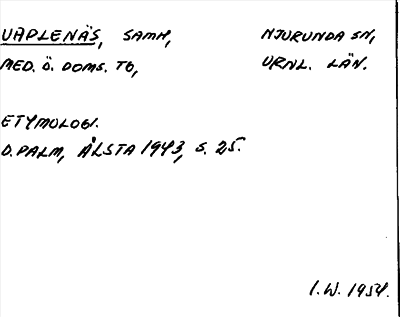 VAPLENÄS, SAMH, NJURUNDA SN,
MED. Ö. DOMS. TG, VRNL. LÄN.
ETYMOLOGI.
D. PALM, ÅLSTA 1943, S. 25.
I.W. 1954.